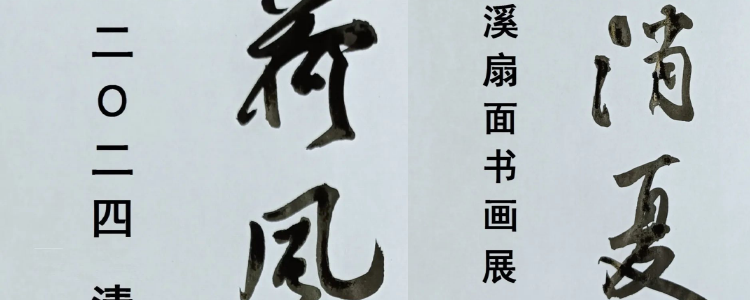 消夏
溪扇面书画展
荷风
二〇二四